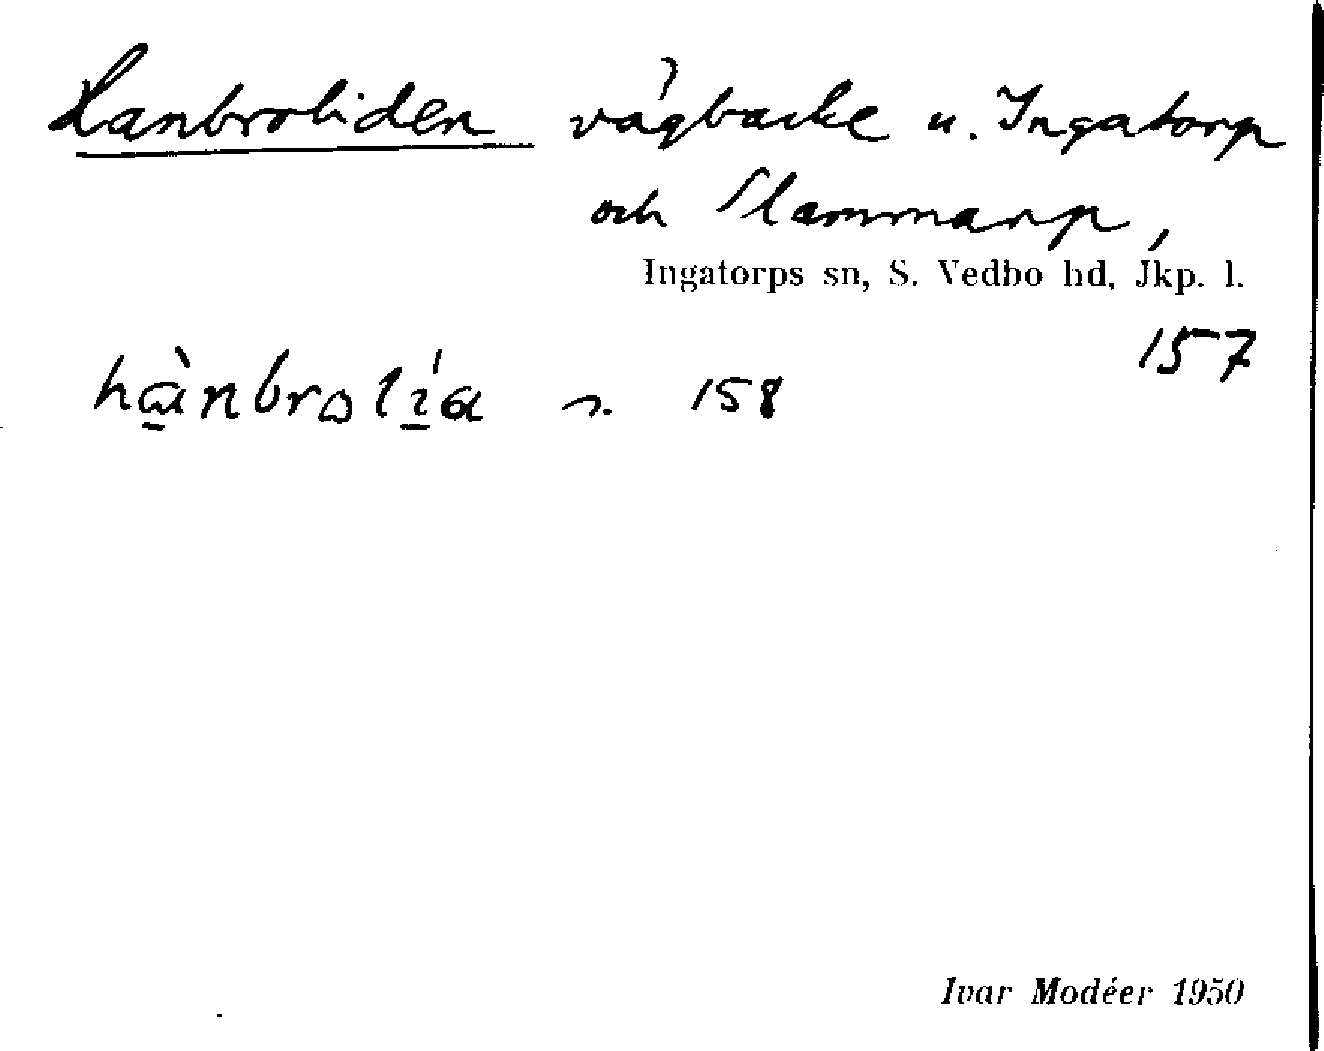 Hanbroliden vägbacke u. Ingatorp
och Slammarp,
Ingatorps sn, S. Vedbo hd, Jkp. l.
157
s. 158
Ivar Modéer 1950